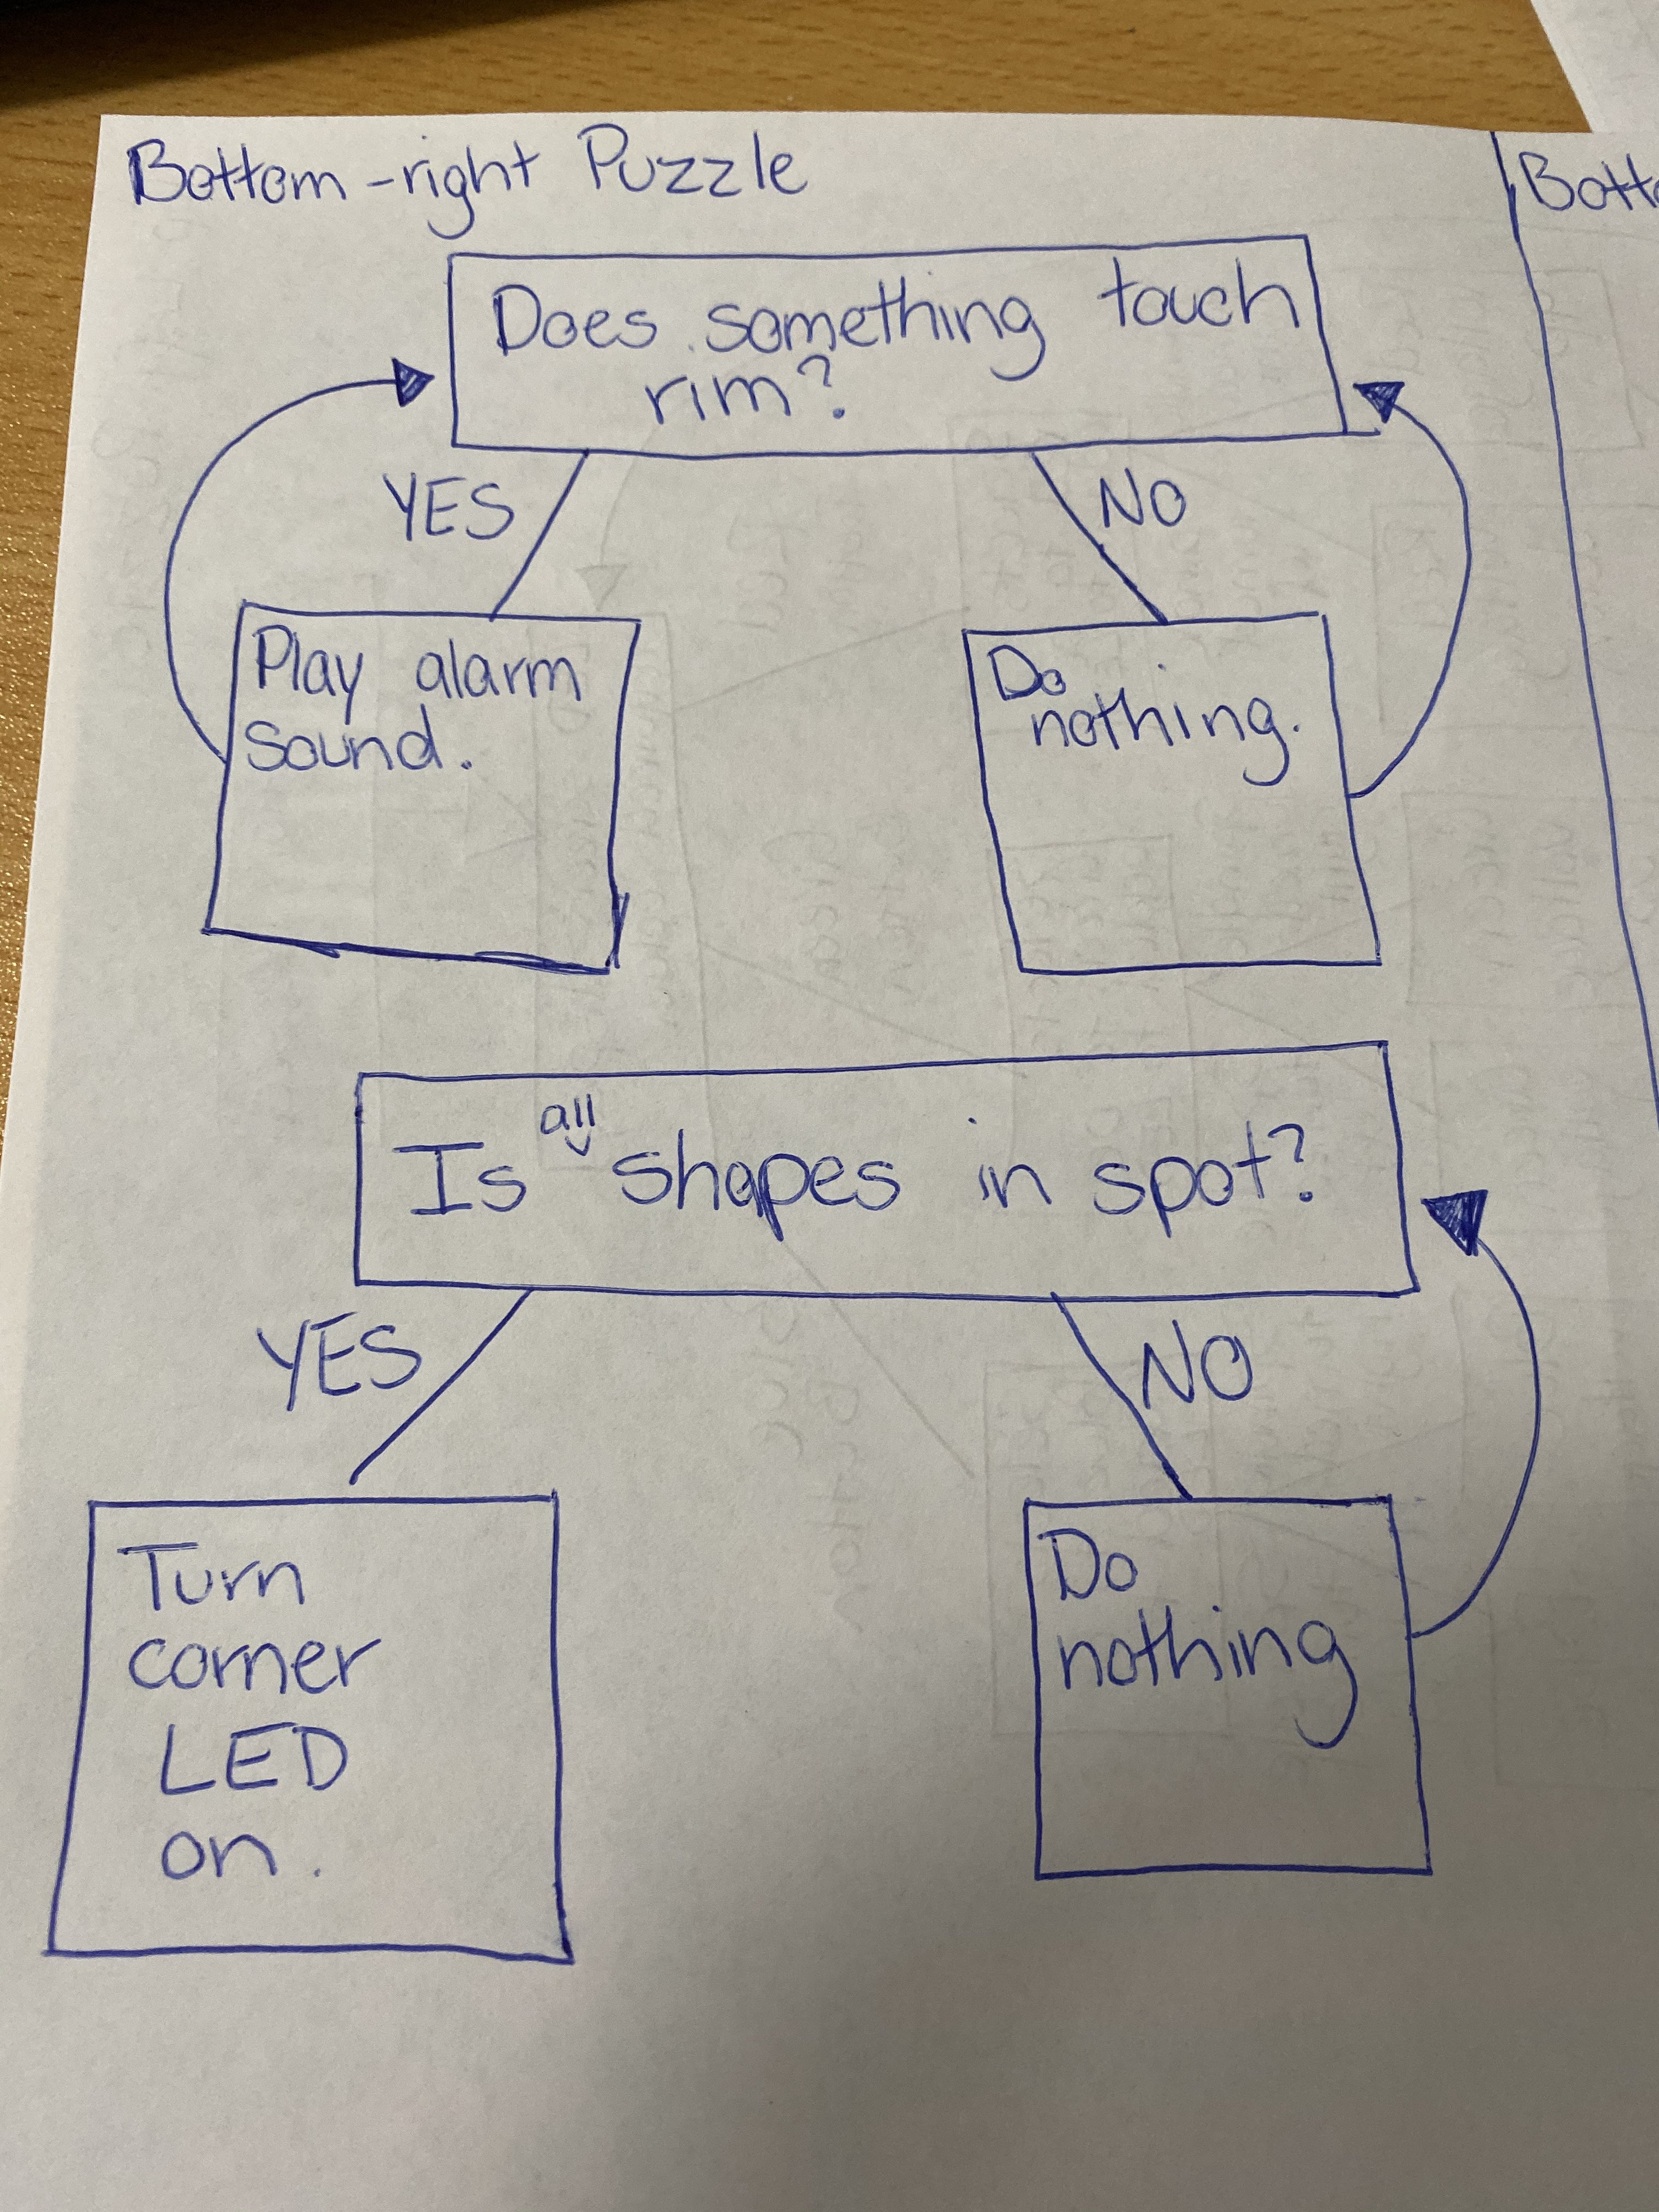 Bottom-right Puzzle
Botto
Does something touch
rim?
YES
NO
Play alarm
sound.
Do
nothing.
Is all shapes in spot?
YES
NO
Turn
corner
LED
on.
Do
nothing